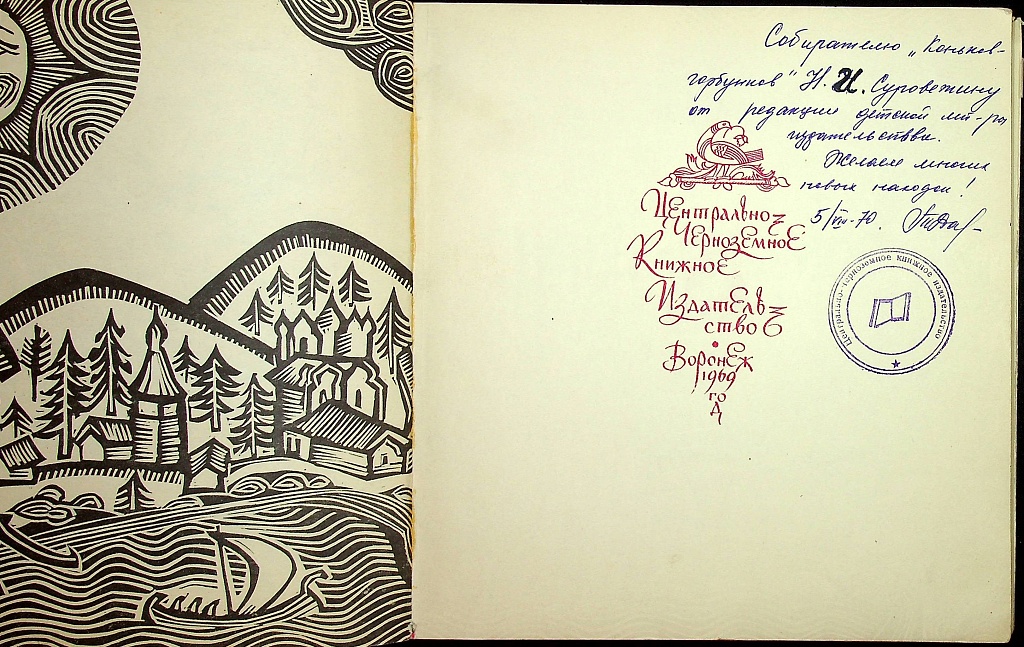 Собирателю „Коньков-
горбунков" Н. И. Суровежину
от редакции детской лит-ры
издательства.
Желаем многих
новых находок!
5/VIII-70.
Центрально-
Черноземное
Книжное
Издатель-
ство
Воронеж
1969
год
Центрально-Черноземное книжное издательство